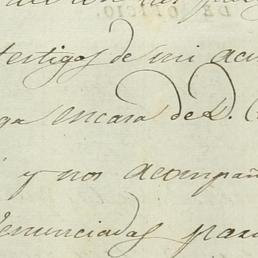 DE OFICIO.
testigos de mi acu
ga encasa de D.
y nos acompañ
denunciadas para